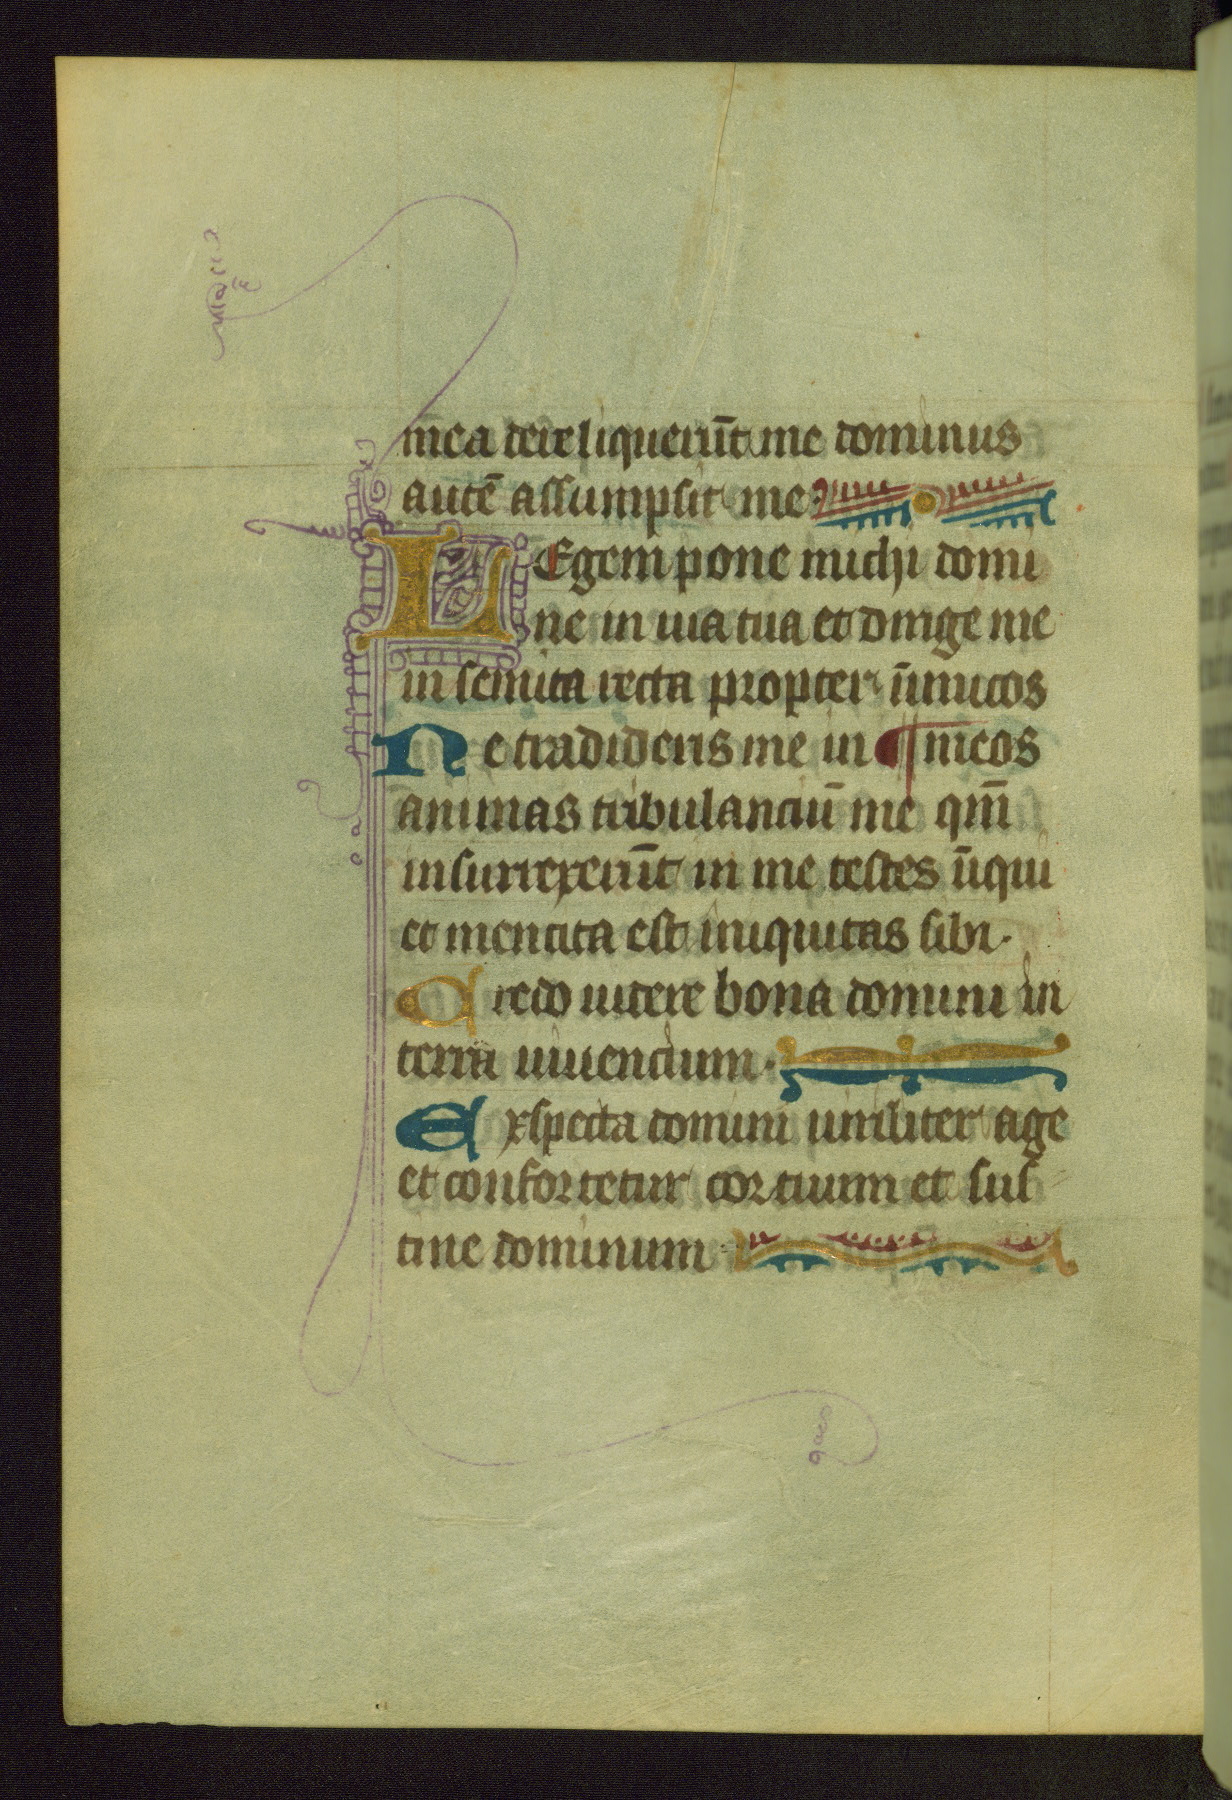 m̄ea dereliquerūt me dominus
autē assumpsit me
LEgem pone michi domi
ne in uia tua et dirige me
in semita recta propter īnimicos
Ne tradideris me in ¶ meos
animas tribulanciū me qm̄
insurrexerūt in me testes īiqui
et mentita est iniquitas sibi.
Credo uidere bona domini in
terra uiuencium.
Exspecta domini uiriliter age
et confortetur cor tuum et sus
tine dominum